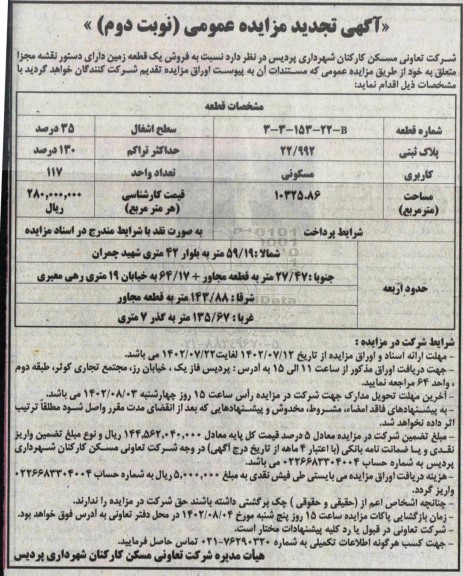 «آگهی تجدید مزایده عمومی (نوبت دوم) »
شرکت تعاونی مسکن کارکنان شهرداری پردیس در نظر دارد نسبت به فروش یک قطعه زمین دارای دستور نقشه مجزا
متعلق به خود از طریق مزایده عمومی که مستندات آن به پیوست اوراق مزایده تقدیم شرکت کنندگان خواهد گردید با
مشخصات ذیل اقدام نماید:
مشخصات قطعه
شماره قطعه ۳-۳-۱۵۳-۲۲-B سطح اشغال ۳۵ درصد
پلاک ثبتی ۲۲/۹۹۲ حداکثر تراکم ۱۳۰ درصد
کاربری مسکونی تعداد واحد ۱۱۷
مساحت (مترمربع) ۱۰۳۲۵.۸۶ قیمت کارشناسی (هر متر مربع) ۲۸۰,۰۰۰,۰۰۰ ریال
شرایط پرداخت به صورت نقد با شرایط مندرج در اسناد مزایده
حدود اربعه
شمالا : ۵۹/۱۹ متر به بلوار ۴۲ متری شهید چمران
جنوبا : ۲۷/۴۷ متر به قطعه مجاور + ۶۴/۱۷ به خیابان ۱۹ متری رهی معیری
شرقا : ۱۴۳/۸۸ متر به قطعه مجاور
غربا : ۱۳۵/۶۷ متر به گذر ۷ متری
شرایط شرکت در مزایده :
- مهلت ارائه اسناد و اوراق مزایده از تاریخ ۱۴۰۲/۰۷/۱۲ لغایت ۱۴۰۲/۰۷/۲۲ می باشد.
- جهت دریافت اوراق مذکور از ساعت ۱۱ الی ۱۵ به آدرس : پردیس فاز یک ، خیابان رز، مجتمع تجاری کوثر، طبقه دوم
، واحد ۶۴ مراجعه نمایید.
- آخرین مهلت تحویل مدارک جهت شرکت در مزایده رأس ساعت ۱۵ روز چهارشنبه ۱۴۰۲/۰۸/۰۳ می باشد.
- به پیشنهادهای فاقد امضاء، مشروط، مخدوش و پیشنهادهایی که بعد از انقضای مدت مقرر واصل شود مطلقاً ترتیب
اثر داده نخواهد شد.
- مبلغ تضمین شرکت در مزایده معادل ۵ درصد قیمت کل پایه معادل ۱۴۴,۵۶۲,۰۴۰,۰۰۰ ریال و نوع مبلغ تضمین واریز
نقدی و یا ضمانت نامه بانکی (با اعتبار ۴ ماهه از تاریخ درج آگهی) در وجه شرکت تعاونی مسکن کارکنان شهرداری
پردیس به شماره حساب ۰۲۲۶۶۸۳۳۰۴۰۰۴ می باشد.
- هزینه دریافت اوراق مزایده می بایستی طی فیش نقدی به مبلغ ۵,۰۰۰,۰۰۰ ریال به شماره حساب ۰۲۲۶۶۸۳۳۰۴۰۰۴
واریز گردد.
- چنانچه اشخاص اعم از (حقیقی و حقوقی ) چک برگشتی داشته باشند حق شرکت در مزایده را ندارند.
- زمان بازگشایی پاکات مزایده ساعت ۱۵ روز پنج شنبه مورخ ۱۴۰۲/۰۸/۰۴ در محل دفتر تعاونی به آدرس فوق خواهد بود.
- شرکت تعاونی در قبول یا رد کلیه پیشنهادات مختار است.
- جهت کسب هرگونه اطلاعات تکمیلی به شماره ۷۶۲۹۰۳۲۰-۰۲۱ تماس حاصل فرمایید.
هیأت مدیره شرکت تعاونی مسکن کارکنان شهرداری پردیس